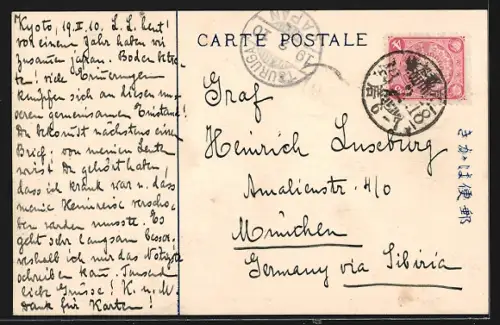 Kyoto, 19.II.10. L. L. heut!
vor einem Jahr haben wir
zusammen japan. Boden betre-
ten! viele Erinnerungen
knüpfen sich an diesen un-
seren gemeinsamen
Du bekommst nächstens einen
Brief; von meinen Leuten
wirst Du gehört haben,
dass ich krank war u. dass
meine Heimreise verscho-
ben werden musste. Es
geht sehr langsam besser,
weshalb ich nur das Nötigste
schreiben kann. Tausend
liebe Grüsse! K. u. M
Dank für Karten!
CARTE POSTALE
TSURUGA
JAPAN
19 2 10
Graf
Heinrich Luxburg
Amalienstr. 4/0
München
Germany via Sibiria
きかは便郵